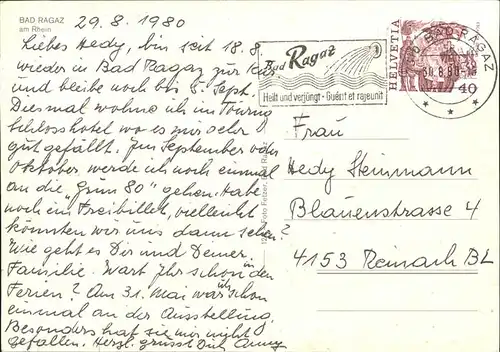 BAD RAGAZ
am Rhein
29.8.1980
Liebes Hedy, bin seit 18.8.
wieder in Bad Ragaz zur Kur
und bleibe noch bis 8. Sept.
Diesmal wohne ich im Touring
Schlosshotel wo es mir sehr
gut gefällt. Im September oder
Oktober werde ich noch einmal
an die "Grün 80" gehen. Habe
noch ein Freibillet, vielleicht
könnten wir uns dann sehen?
Wie geht es Dir und Deiner
Familie. Wart Ihr schon in den
Ferien? Am 31. Mai war ich schon
einmal an der Ausstellung,
Besonders hat sie mir nicht
gefallen. Herzl. grüsst Dich Anny
Bad Ragaz
Heilt und verjüngt - Guérit et rajeunit
HELVETIA
40
BAD RAGAZ
30.8.80
Foto
Frau
Hedy Steinmann
Blauenstrasse 4
4153 Reinach BL